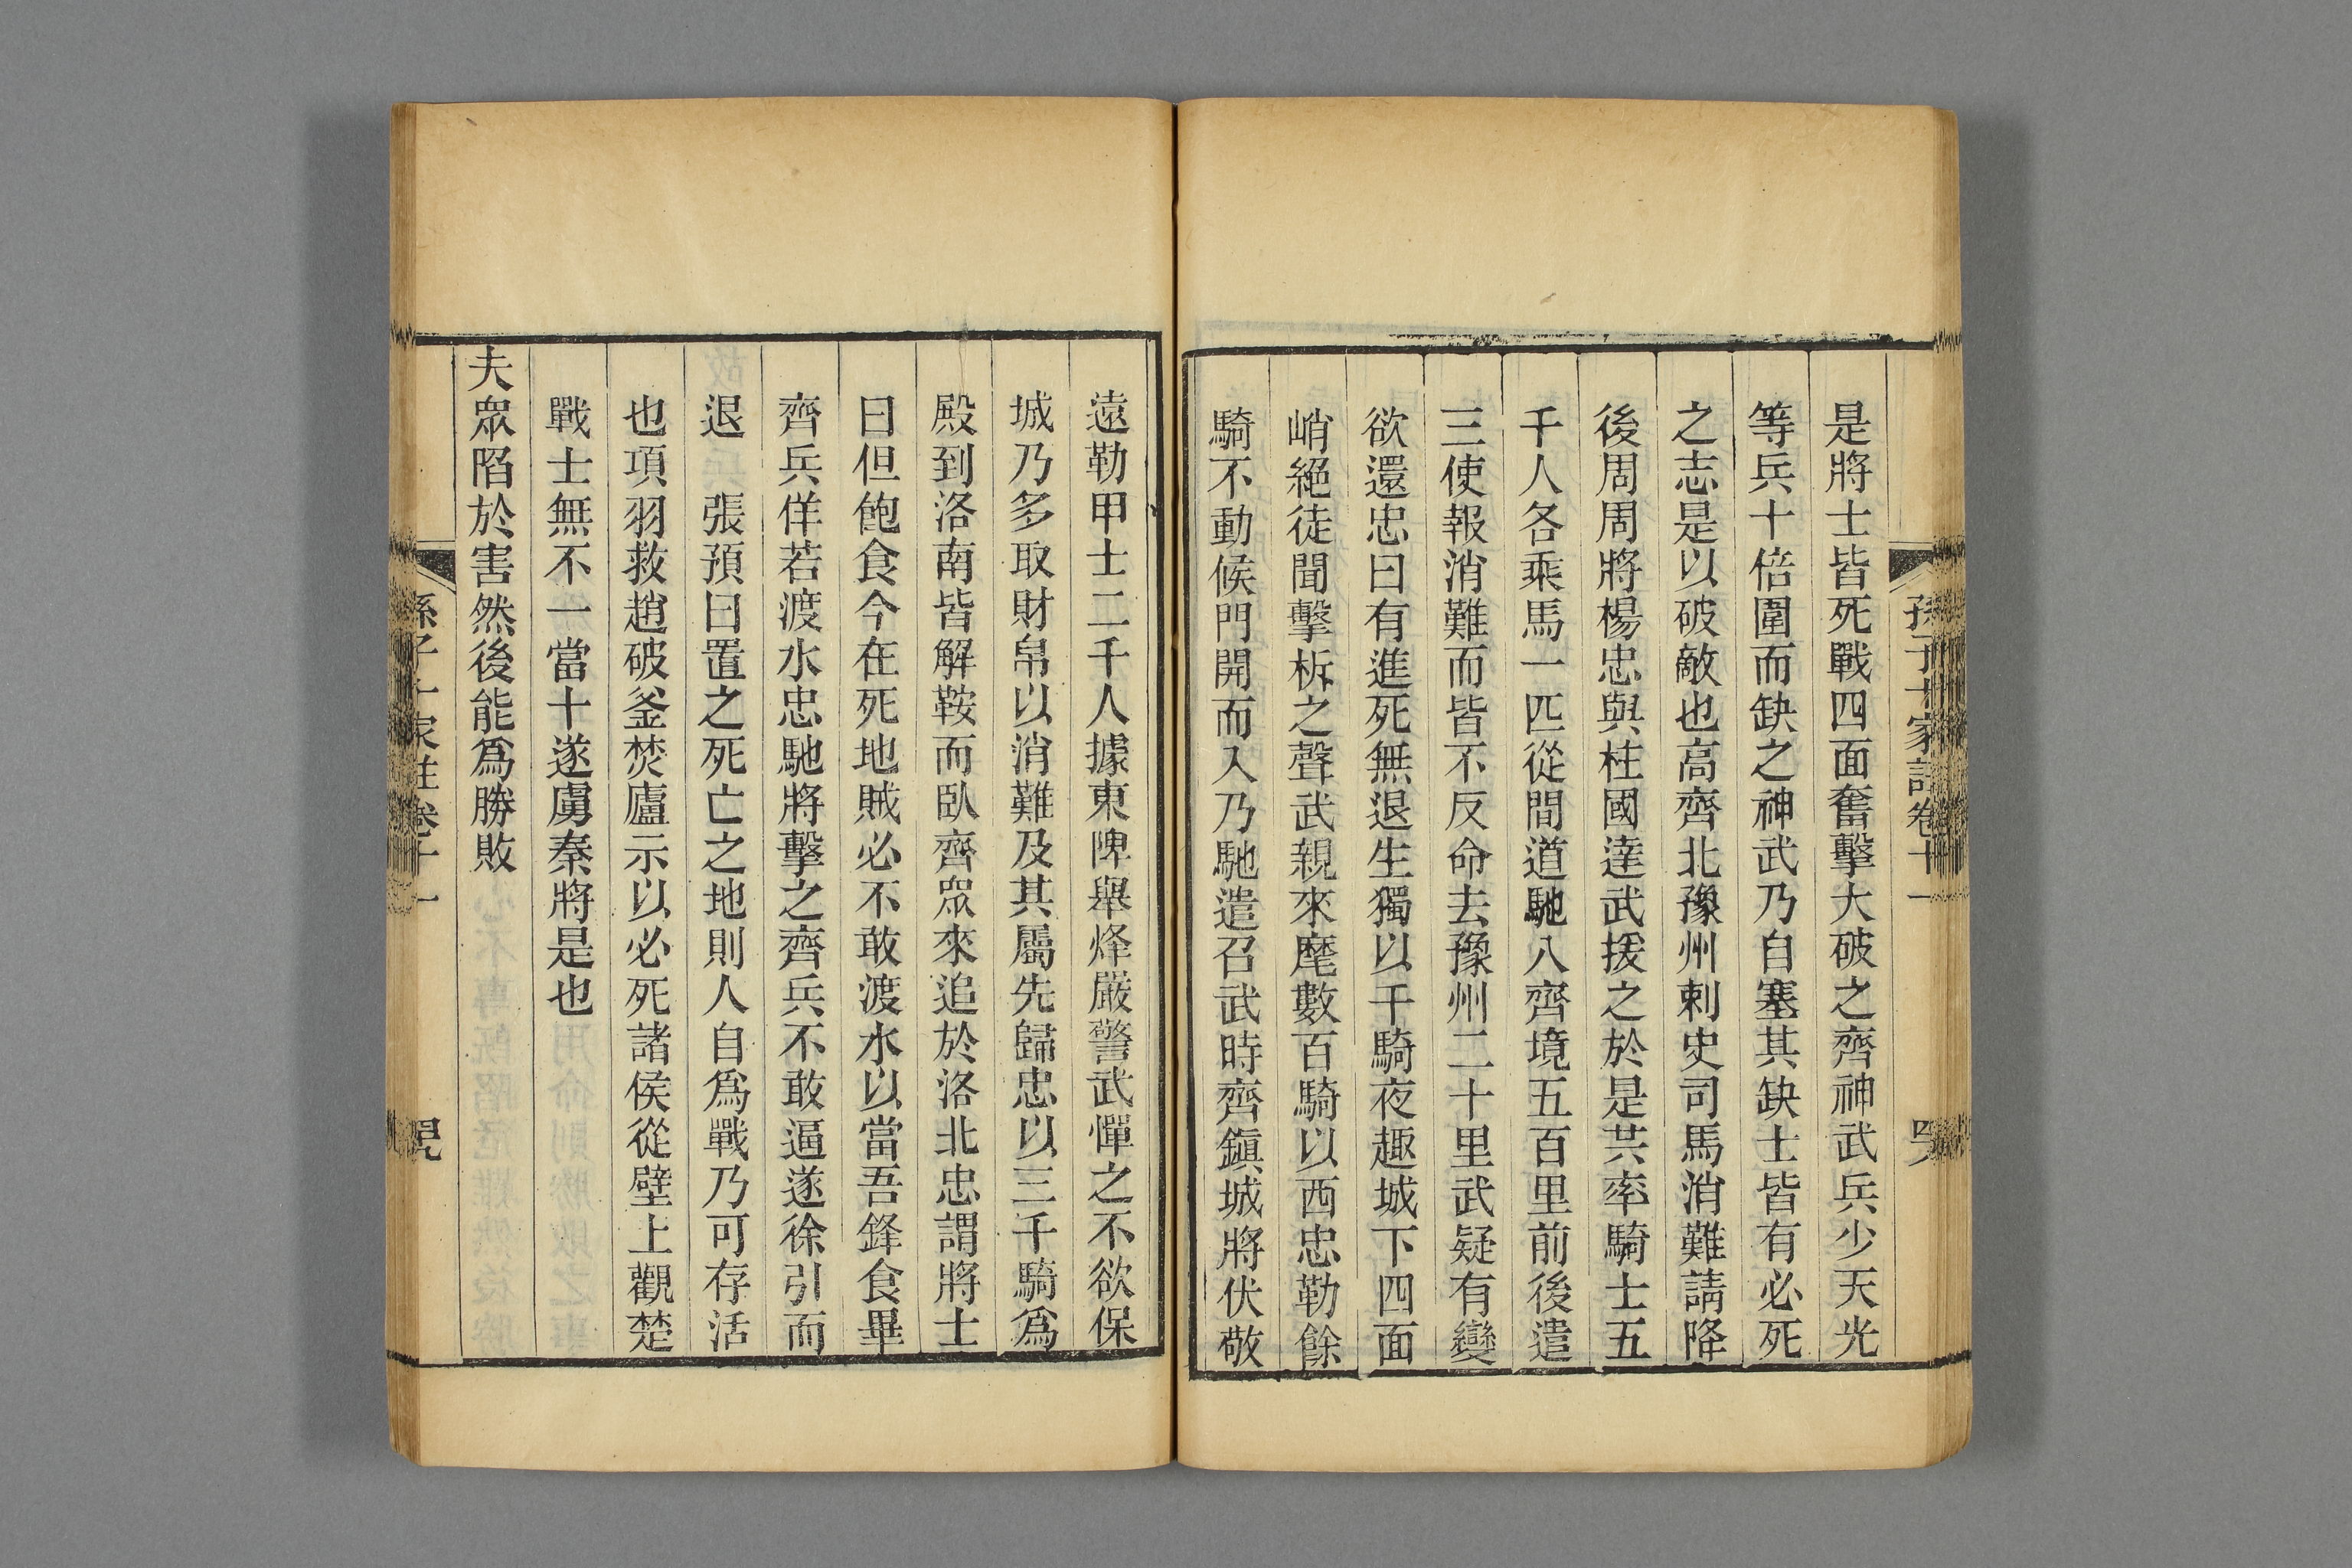 孫子十家註卷十一
是將士皆死戰四面奮擊大破之齊神武兵少天光
等兵十倍圍而缺之神武乃自塞其缺士皆有必死
之志是以破敵也高齊北豫州刺史司馬消難請降
後周周將楊忠與柱國達武援之於是共率騎士五
千人各乘馬一匹從間道馳入齊境五百里前後遣
三使報消難而皆不反命去豫州二十里武疑有變
欲還忠曰有進死無退生獨以千騎夜趣城下四面
峭絕徒聞擊柝之聲武親來麾數百騎以西忠勒餘
騎不動候門開而入乃馳遣召武時齊鎮城將伏敬
遠勒甲士二千人據東陴舉烽嚴警武憚之不欲保
城乃多取財帛以消難及其屬先歸忠以三千騎爲
殿到洛南皆解鞍而臥齊眾來追於洛北忠謂將士
曰但飽食今在死地賊必不敢渡水以當吾鋒食畢
齊兵佯若渡水忠馳將擊之齊兵不敢逼遂徐引而
退　張預曰置之死亡之地則人自爲戰乃可存活
也項羽救趙破釜焚廬示以必死諸侯從壁上觀楚
戰士無不一當十遂虜秦將是也
夫眾陷於害然後能爲勝敗
孫子十家註卷十一